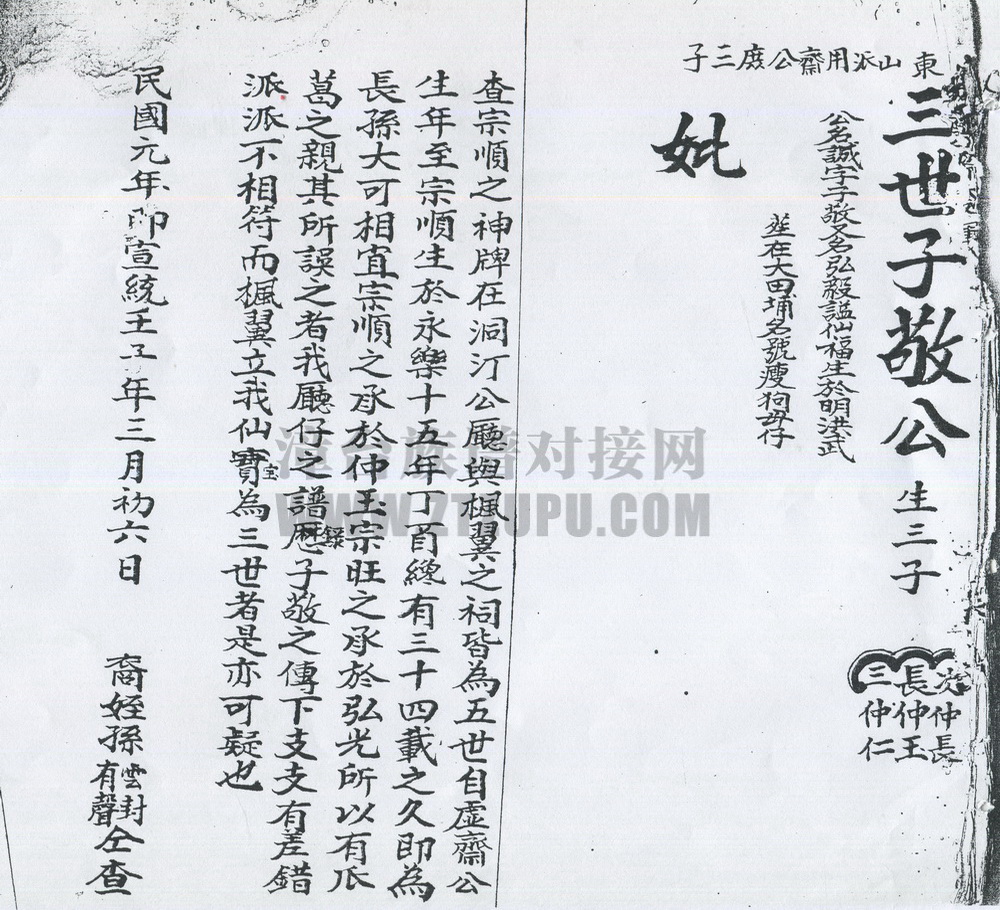 東山派用齋公庶三子
三世子敬公 生三子
仲長
長仲玉
三仲仁
公名誠字子敬又名弘毅謚仙福生於明洪武
葬在大田埔名號瘦狗母仔
妣
查宗順之神牌在洞汀公廳與楓翼之祠皆為五世自虛齋公
生年至宗順生於永樂十五年丁酉總有三十四載之久即為
長孫大可相宜宗順之承於仲玉宗旺之承於弘光所以有瓜
葛之親其所誤之者我廳仔之譜歷錄子敬之傳下支支有差錯
派派不相符而楓翼立我仙寶宝為三世者是亦可疑也
民國元年即宣統壬子年三月初六日 裔姪孫雲封有聲仝查
漳台族谱对接网
WWW.ZTZUPU.COM